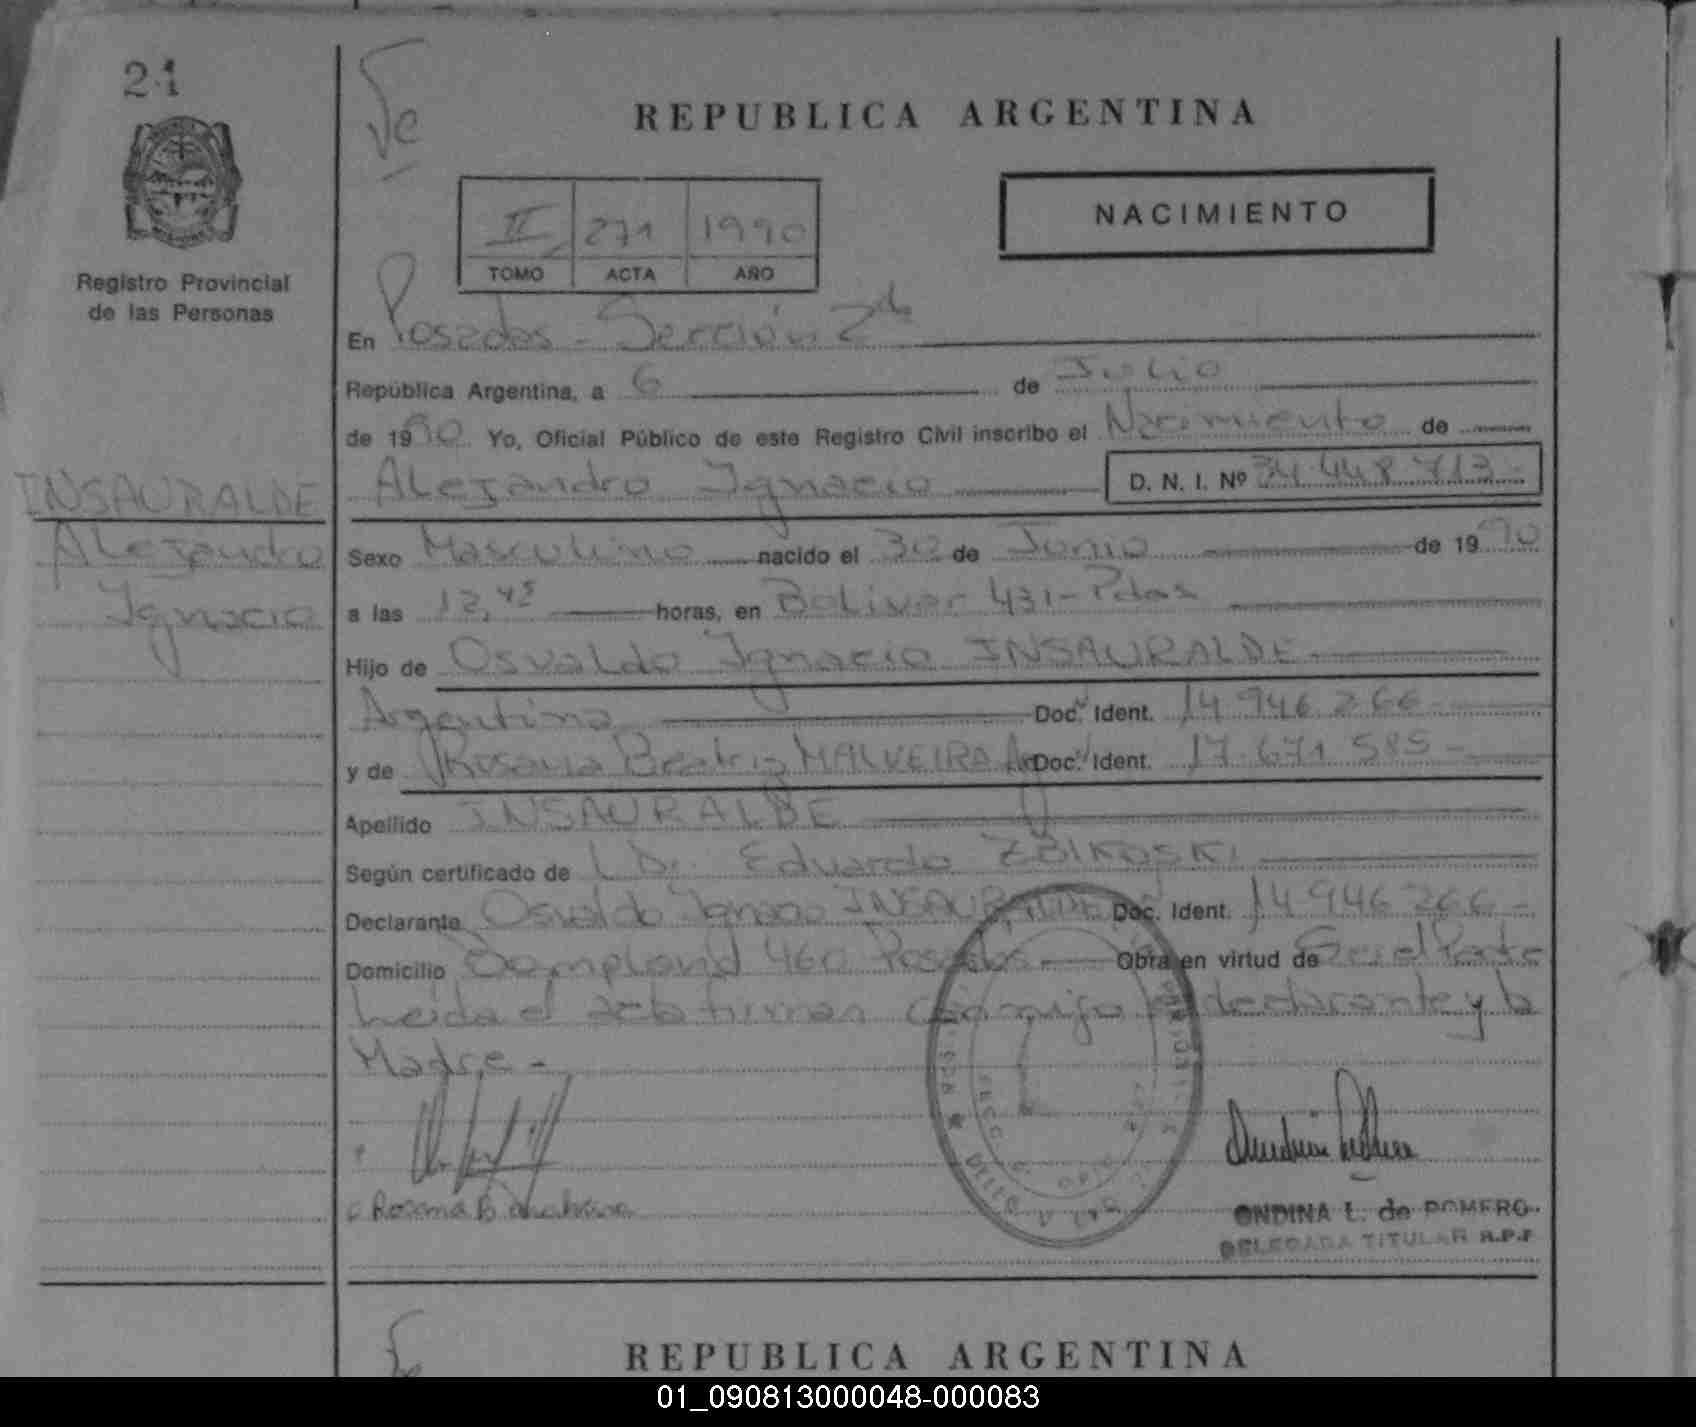 21
REPUBLICA ARGENTINA
NACIMIENTO
II 271 1990
TOMO ACTA AÑO
Registro Provincial
de las Personas
En Posadas - Sección 2da
República Argentina, a 6 de Julio
de 1990 Yo, Oficial Público de este Registro Civil inscribo el Nacimiento de
Alejandro Ignacio D. N. I. Nº 34.448.713-
INSAURALDE
Alejandro
Ignacio
Sexo Masculino nacido el 30 de Junio de 1990
a las 12,45 horas, en Bolivar 431-Pdas
Hijo de Osvaldo Ignacio INSAURALDE
Argentino Doc. Ident. 14.946.266-
y de Rosana Beatriz MALVEIRA Arg Doc. Ident. 17.671.585-
Apellido INSAURALDE
Según certificado de Dr. Eduardo ZBIKOSKI
Declarante Osvaldo Ignacio INSAURALDE Doc. Ident. 14946266-
Domicilio Bompland 460 Posadas Obra en virtud de Ser el Padre
Leida el acta firman conmigo el declarante y la
Madre-
ONDINA L. de ROMERO
DELEGADA TITULAR R.P.P
REPUBLICA ARGENTINA
01_090813000048-000083